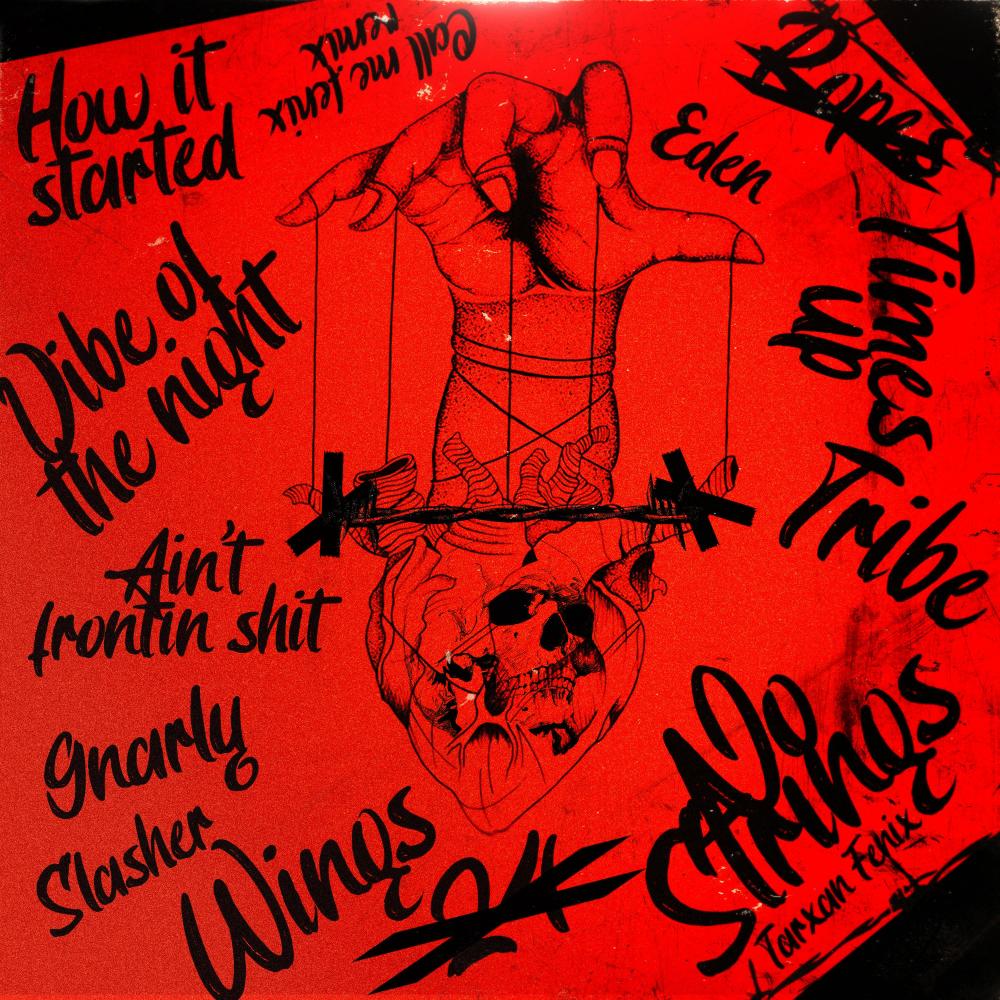 How it
started
Call me fenix
remix
Ropes
Eden
Times
up
Vibe of
the night
Tribe
Ain't
frontin shit
Gnarly
Slasher
Wings
24
No
Strings
Tarxan Fenix